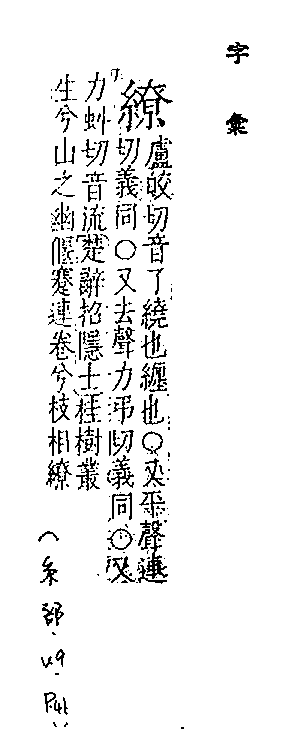 字彙
繚 盧皎切音了繞也纏也○又平聲連
切義同○又去聲力弔切義同○又
力虯切音流楚辭招隱士桂樹叢
生兮山之幽偃蹇連卷兮枝相繚
(糸部.49.P41